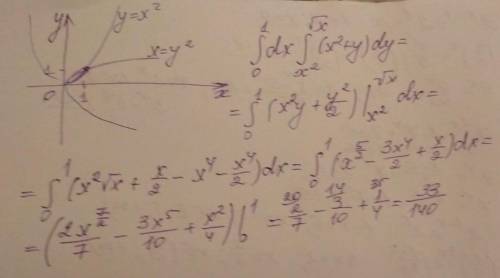 y
y=x²
x=y²
1
0
1
x
∫₀¹ dx ∫_{x²}^{√x} (x²+y)dy=
= ∫₀¹ (x²y + y²/2) |_{x²}^{√x} dx=
= ∫₀¹ (x²√x + x/2 - x⁴ - x⁴/2)dx = ∫₀¹ (x^{5/2} - 3x⁴/2 + x/2)dx=
= (2x^{7/2}/7 - 3x⁵/10 + x²/4) |₀¹ = ²⁰2/7 - ¹⁴3/10 + ³⁵1/4 = 33/140